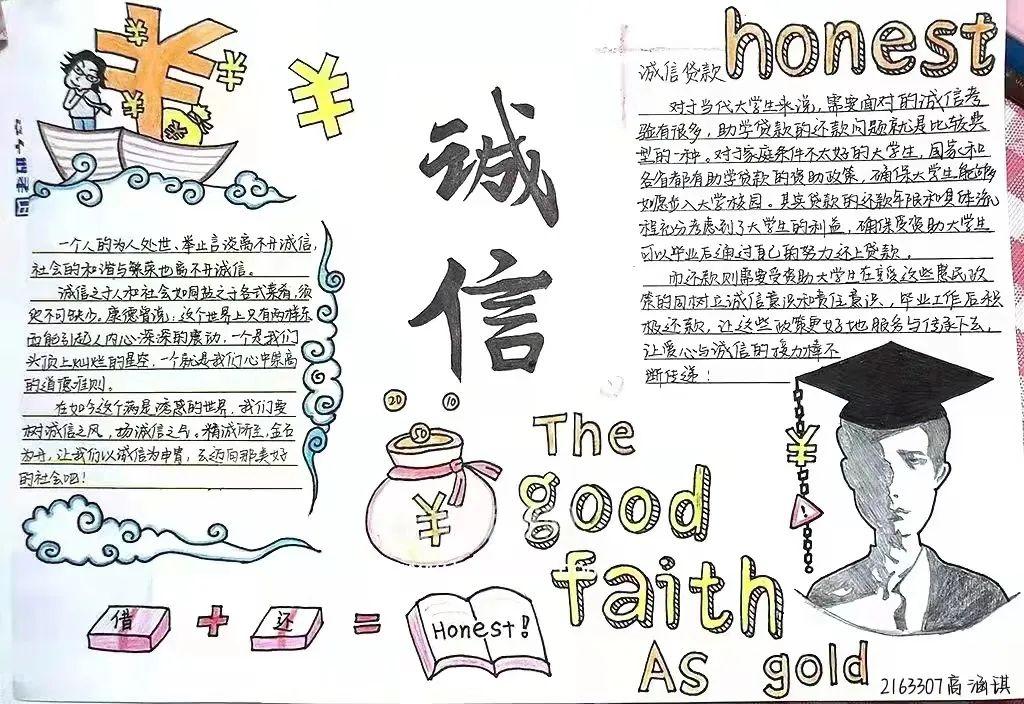 诚信
honest
诚信贷款
对于当代大学生来说，需要面对的诚信考
验有很多，助学贷款的还款问题就是比较典
型的一种。对于家庭条件不太好的大学生，国家和
各省都有助学贷款的资助政策，确保大学生能够
如愿步入大学校园。其实贷款的还款年限和具体流
程充分考虑到了大学生的利益，确保受资助大学生
可以毕业后通过自己的努力还上贷款。
而还款则需要受资助大学生在享受这些惠民政
策的同时树立诚信意识和责任意识，毕业工作后积
极还款，让这些政策更好地服务与传承下去，
让爱心与诚信的接力棒不
断传递！
一个人的为人处世、举止言谈离不开诚信，
社会的和谐与繁荣也离不开诚信。
诚信之于人和社会如同盐之于各式菜肴，须
臾不可缺少。康德曾说：这个世界上只有两样东
西能引起人内心深深的震动，一个是我们
头顶上灿烂的星空，一个就是我们心中崇高
的道德准则。
在如今这个满是诱惑的世界，我们要
树诚信之风，扬诚信之气。精诚所至，金石
为开，让我们以诚信为甲胄，去迈向那美好
的社会吧！
20 10
50
¥
The
good
faith
As gold
借 + 还 = Honest!
2163307高涵琪